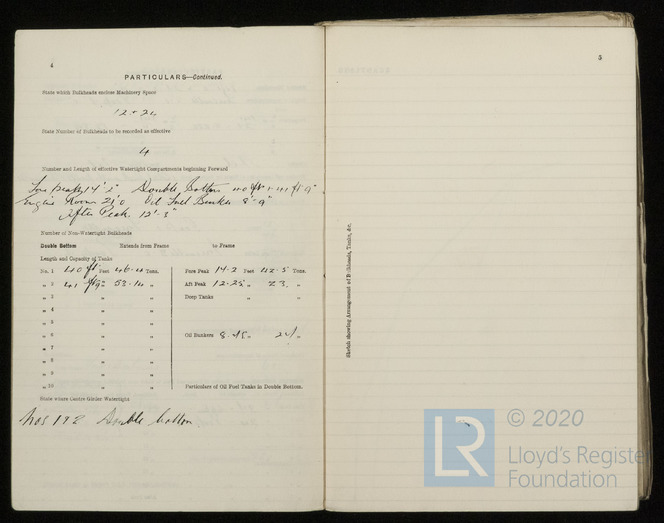 4
PARTICULARS—Continued.
State which Bulkheads enclose Machinery Space
12 + 24
State Number of Bulkheads to be recorded as effective
4
Number and Length of effective Watertight Compartments beginning Forward
Fore Peak 14' 2" Double Bottom 40 ft 41 ft 9"
Engine Room 21' 0 Oil Fuel Bunker 8' 9"
After Peak 12' 3"
Number of Non-Watertight Bulkheads
Double Bottom Extends from Frame to Frame
Length and Capacity of Tanks
No. 1 40 ft Feet 46.4 Tons. Fore Peak 14.2 Feet 42.5 Tons.
„ 2 41 ft 9" 53.14 „ Aft Peak 12.25 „ 23 „
„ 3 „ „ Deep Tanks „ „
„ 4 „ „
„ 5 „ „
„ 6 „ „ Oil Bunkers „ 24 „
„ 7 „ „
„ 8 „ „
„ 9 „ „
„ 10 „ „ Particulars of Oil Fuel Tanks in Double Bottom.
State where Centre Girder Watertight
Nos 1 & 2 Double bottom
5
Sketch showing Arrangement of Bulkheads, Tanks, &c.
LR
© 2020
Lloyd's Register
Foundation